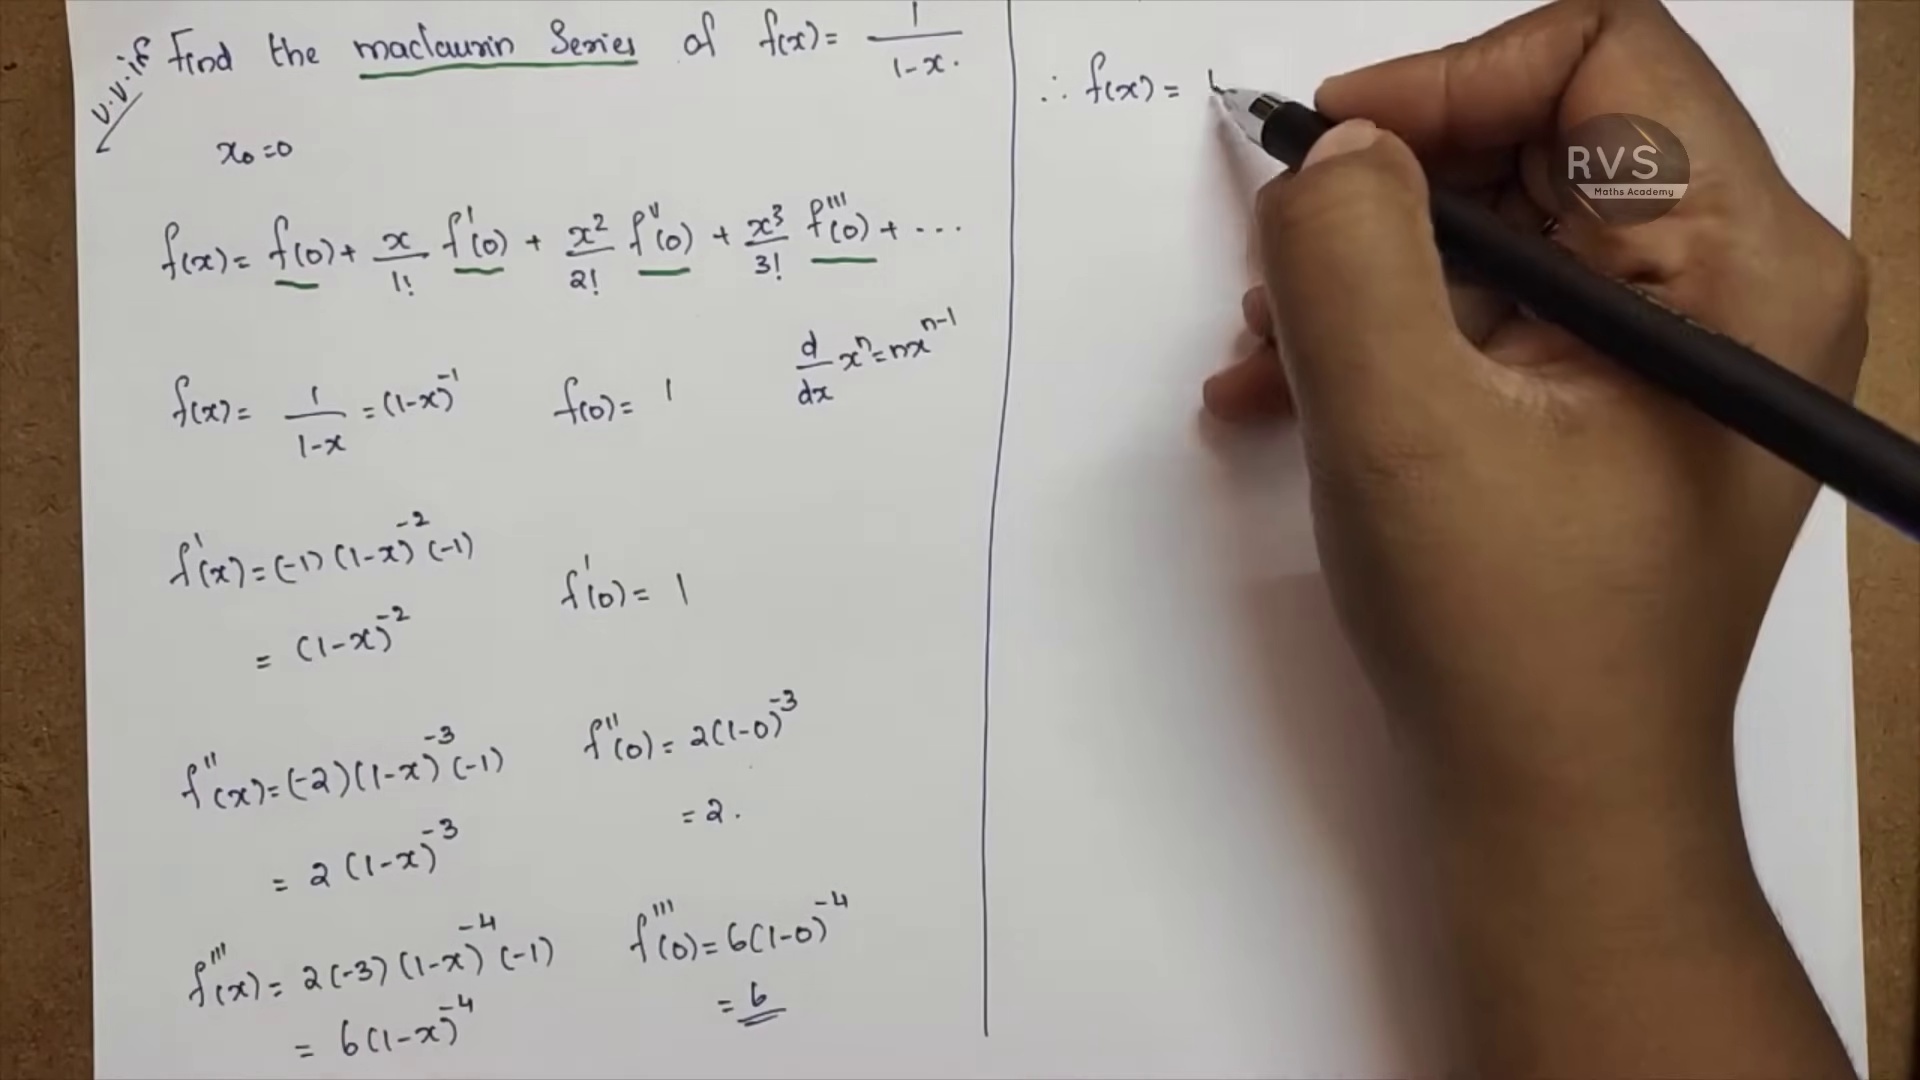 V.V.if Find the maclaurin Series of f(x) = 1/1-x.
x₀=0
f(x) = f(0) + x/1! f'(0) + x²/2! f''(0) + x³/3! f'''(0) + ...
f(x) = 1/1-x = (1-x)⁻¹ f(0) = 1 d/dx xⁿ = nxⁿ⁻¹
f'(x) = (-1)(1-x)⁻²(-1)
= (1-x)⁻² f'(0) = 1
f''(x) = (-2)(1-x)⁻³(-1) f''(0) = 2(1-0)⁻³
= 2(1-x)⁻³ = 2.
f'''(x) = 2(-3)(1-x)⁻⁴(-1) f'''(0) = 6(1-0)⁻⁴
= 6(1-x)⁻⁴ = 6
∴ f(x) =
RVS
Maths Academy